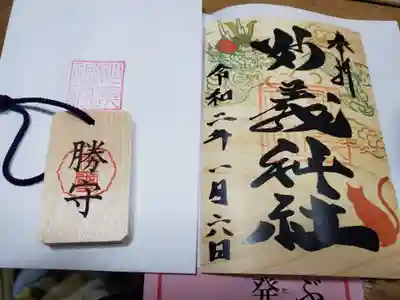 奉拝
妙義神社
令和二年一月六日
勝守
ぶ
発